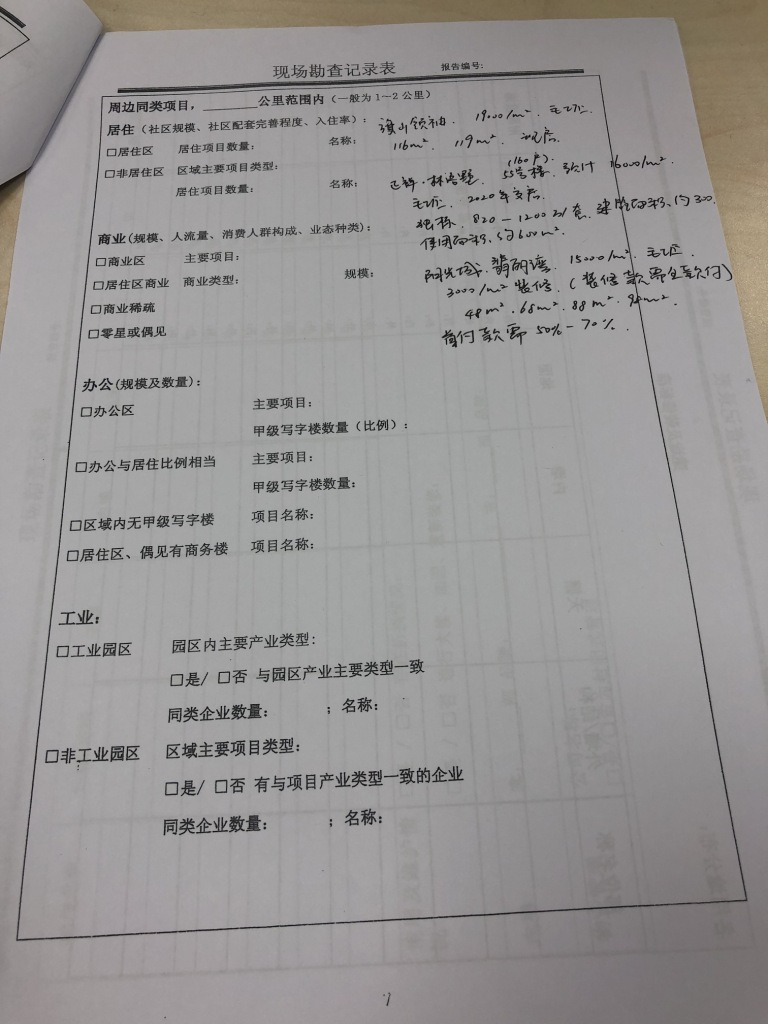 现场勘查记录表 报告编号:
周边同类项目，______公里范围内（一般为1～2公里）
居住（社区规模、社区配套完善程度、入住率）:
旗山领袖. 19000/m². 毛坯.
□居住区 居住项目数量: 名称: 116m². 119m². 现房.
□非居住区 区域主要项目类型: (160户).
居住项目数量: 名称: 正祥·林语墅. 55号楼. 预计 16000/m².
毛坯. 2020年交房.
独栋. 820-1200万/套. 建筑面积.约300.
商业(规模、人流量、消费人群构成、业态种类):
使用面积.约600m².
□商业区 主要项目:
阳光城.翡丽湾. 15000/m². 毛坯.
□居住区商业 商业类型: 规模:
3000/m² 装修. (装修款需全款付)
□商业稀疏
48m². 68m². 88m². 94m².
□零星或偶见
首付款需 50%-70%.
办公(规模及数量):
□办公区 主要项目:
甲级写字楼数量（比例）:
□办公与居住比例相当 主要项目:
甲级写字楼数量:
□区域内无甲级写字楼 项目名称:
□居住区、偶见有商务楼 项目名称:
工业:
□工业园区 园区内主要产业类型:
□是/ □否 与园区产业主要类型一致
同类企业数量: ；名称:
□非工业园区 区域主要项目类型:
□是/ □否 有与项目产业类型一致的企业
同类企业数量: ；名称: